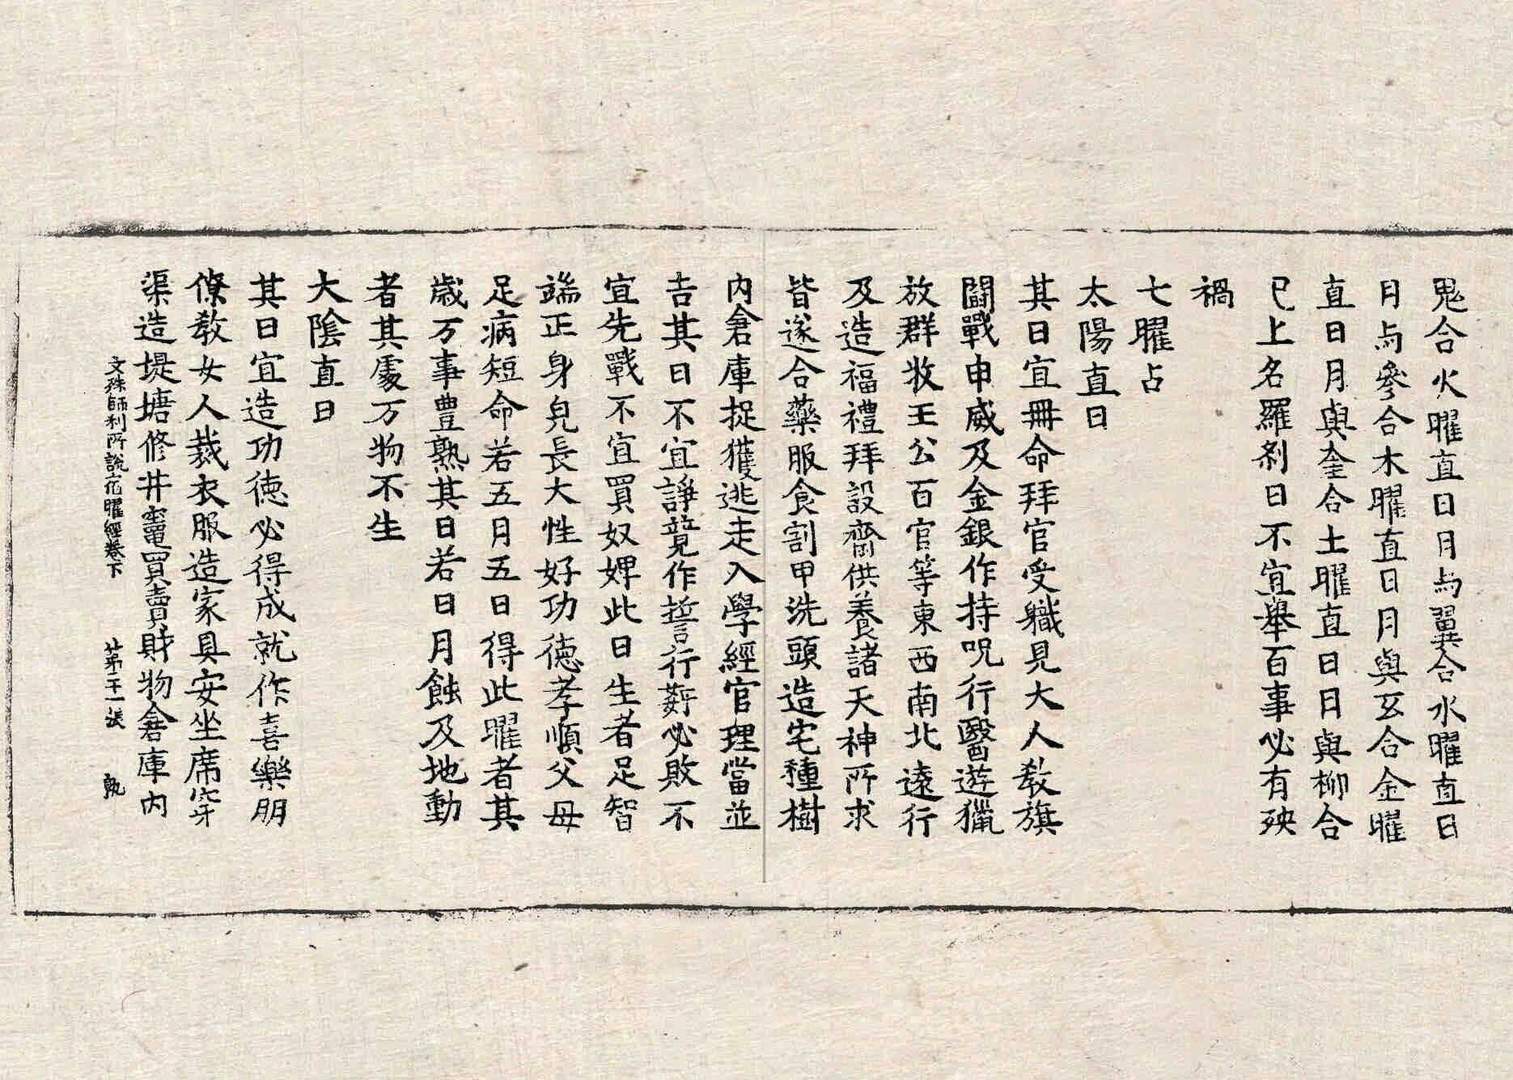 鬼合火曜直日月与翼合水曜直日
月与參合木曜直日月與互合金曜
直日月與奎合土曜直日日與柳合
已上名羅剎日不宜舉百事必有殃
禍
七曜占
太陽直日
其日宜冊命拜官受軄見大人教旗
鬪戰申威及金銀作持呪行醫遊獵
放群牧王公百官等東西南北遠行
及造福禮拜設齋供養諸天神所求
皆遂合藥服食割甲洗頭造宅種樹
內倉庫捉獲逃走入學經官理當並
吉其日不宜諍競作誓行姧必敗不
宜先戰不宜買奴婢此日生者足智
端正身皃長大性好功德孝順父母
足病短命若五月五日得此曜者其
歲万事豊熟其日若日月蝕及地動
者其處万物不生
大陰直日
其日宜造功德必得成就作喜樂朋
僚教女人裁衣服造家具安坐席穿
渠造堤塘修井竈買賣財物倉庫內
文殊師利所說宿曜經卷下 第二十一張